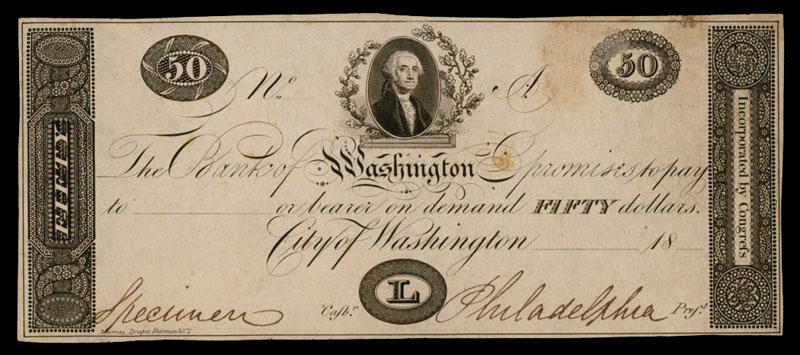 50 50
No. A
The Bank of Washington promises to pay
to or bearer on demand FIFTY dollars.
City of Washington 18
L
Specimen Cashr. Philadelphia Prest.
Murray, Draper, Fairman & Co.
Incorporated by Congress